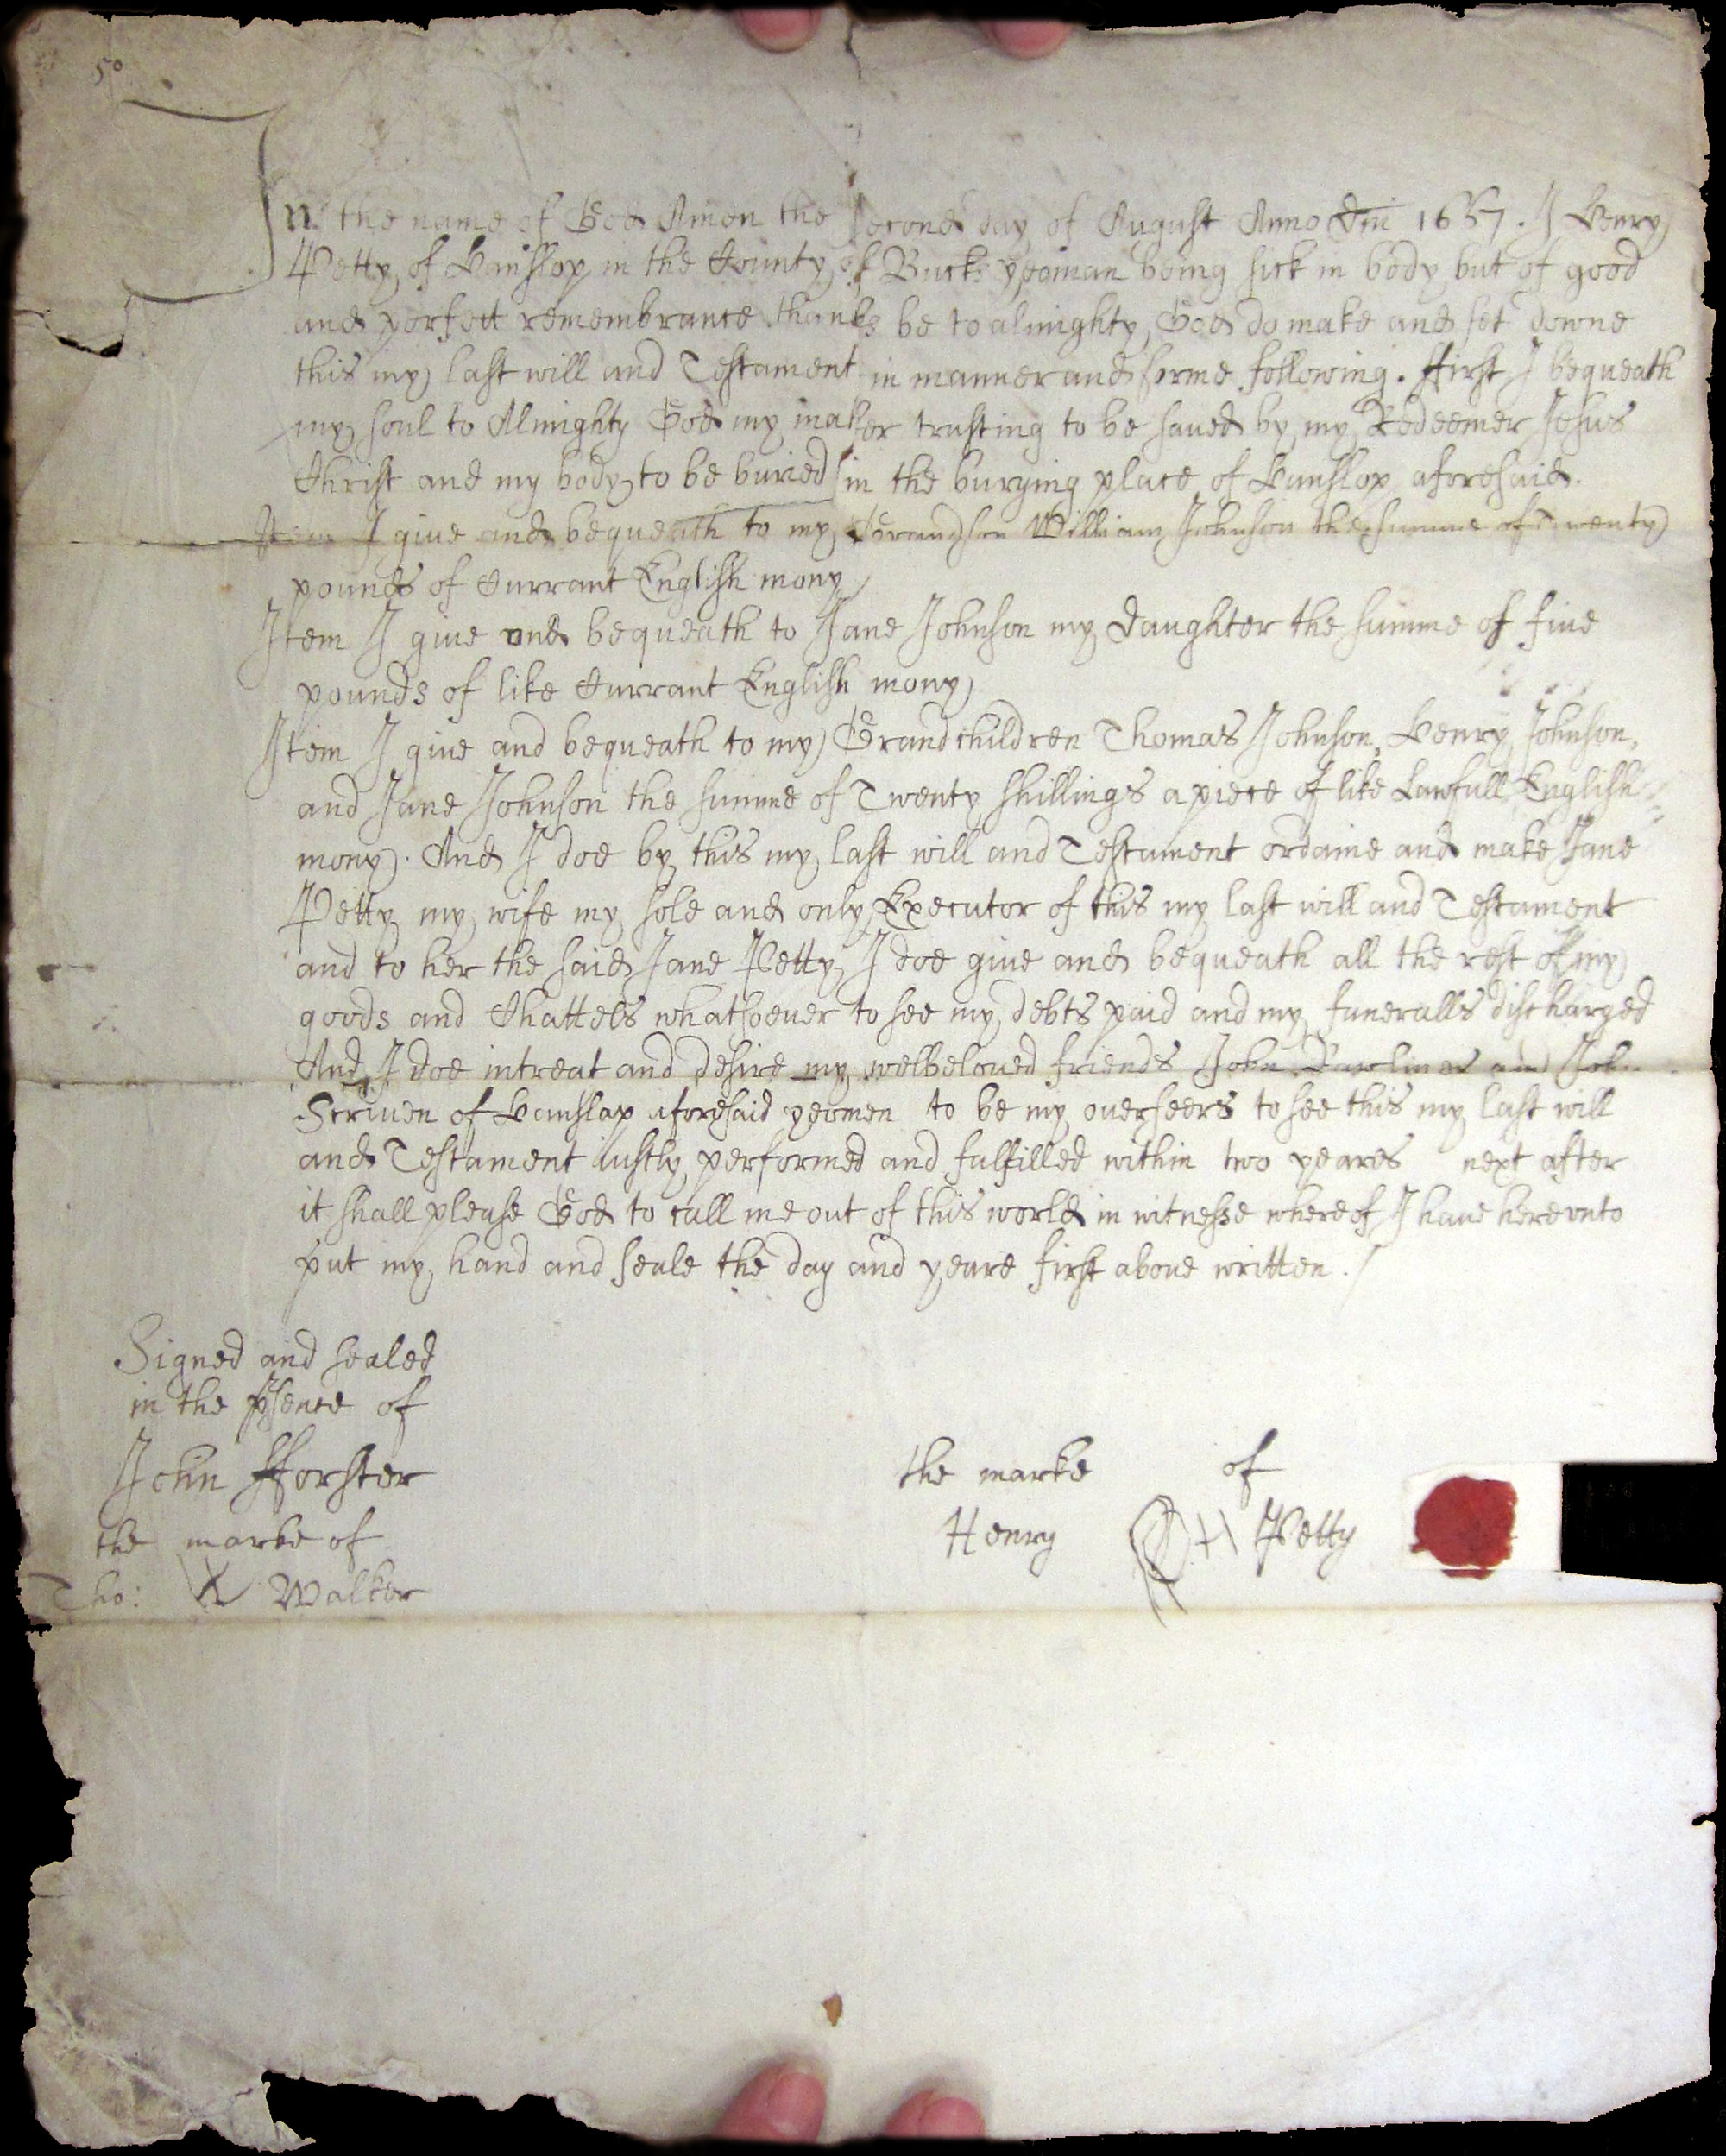 50
In the name of God Amen the second day of August Anno Dni 1657. I Henry
Petty of Hanslop in the County of Bucks yeoman being sick in body but of good
and perfect remembrance thanks be to almighty God do make and set downe
this my last will and Testament in manner and forme following. ffirst I bequeath
my soul to Almighty God my maker trusting to be saued by my Redeemer Jesus
Christ and my body to be buried in the burying place of Hanslop aforesaid.
Item I giue and bequeath to my Grandson William Johnson the summe of Twenty
pounds of Currant English mony
Item I giue and bequeath to Jane Johnson my daughter the summe of fiue
pounds of like Currant English mony
Item I giue and bequeath to my Grandchildren Thomas Johnson, Henry Johnson,
and Jane Johnson the summe of Twenty shillings a piece of like Lawfull English
mony. And I doe by this my last will and Testament ordaine and make Jane
Petty my wife my sole and only Executor of this my last will and Testament
and to her the said Jane Petty I doe giue and bequeath all the rest of my
goods and Chattels whatsoeuer to see my debts paid and my funeralls discharged
And I doe intreat and desire my welbeloued friends John and John
Scriuen of Hanslap aforesaid yeomen to be my ouerseers to see this my last will
and Testament iustly performed and fulfilled within two yeares next after
it shall please God to call me out of this world in witnesse whereof I haue herevnto
put my hand and seale the day and yeare first aboue written.
Signed and sealed
in the psence of
John fforster
the marke of
Tho: X Walker
the marke of
Henry H Petty